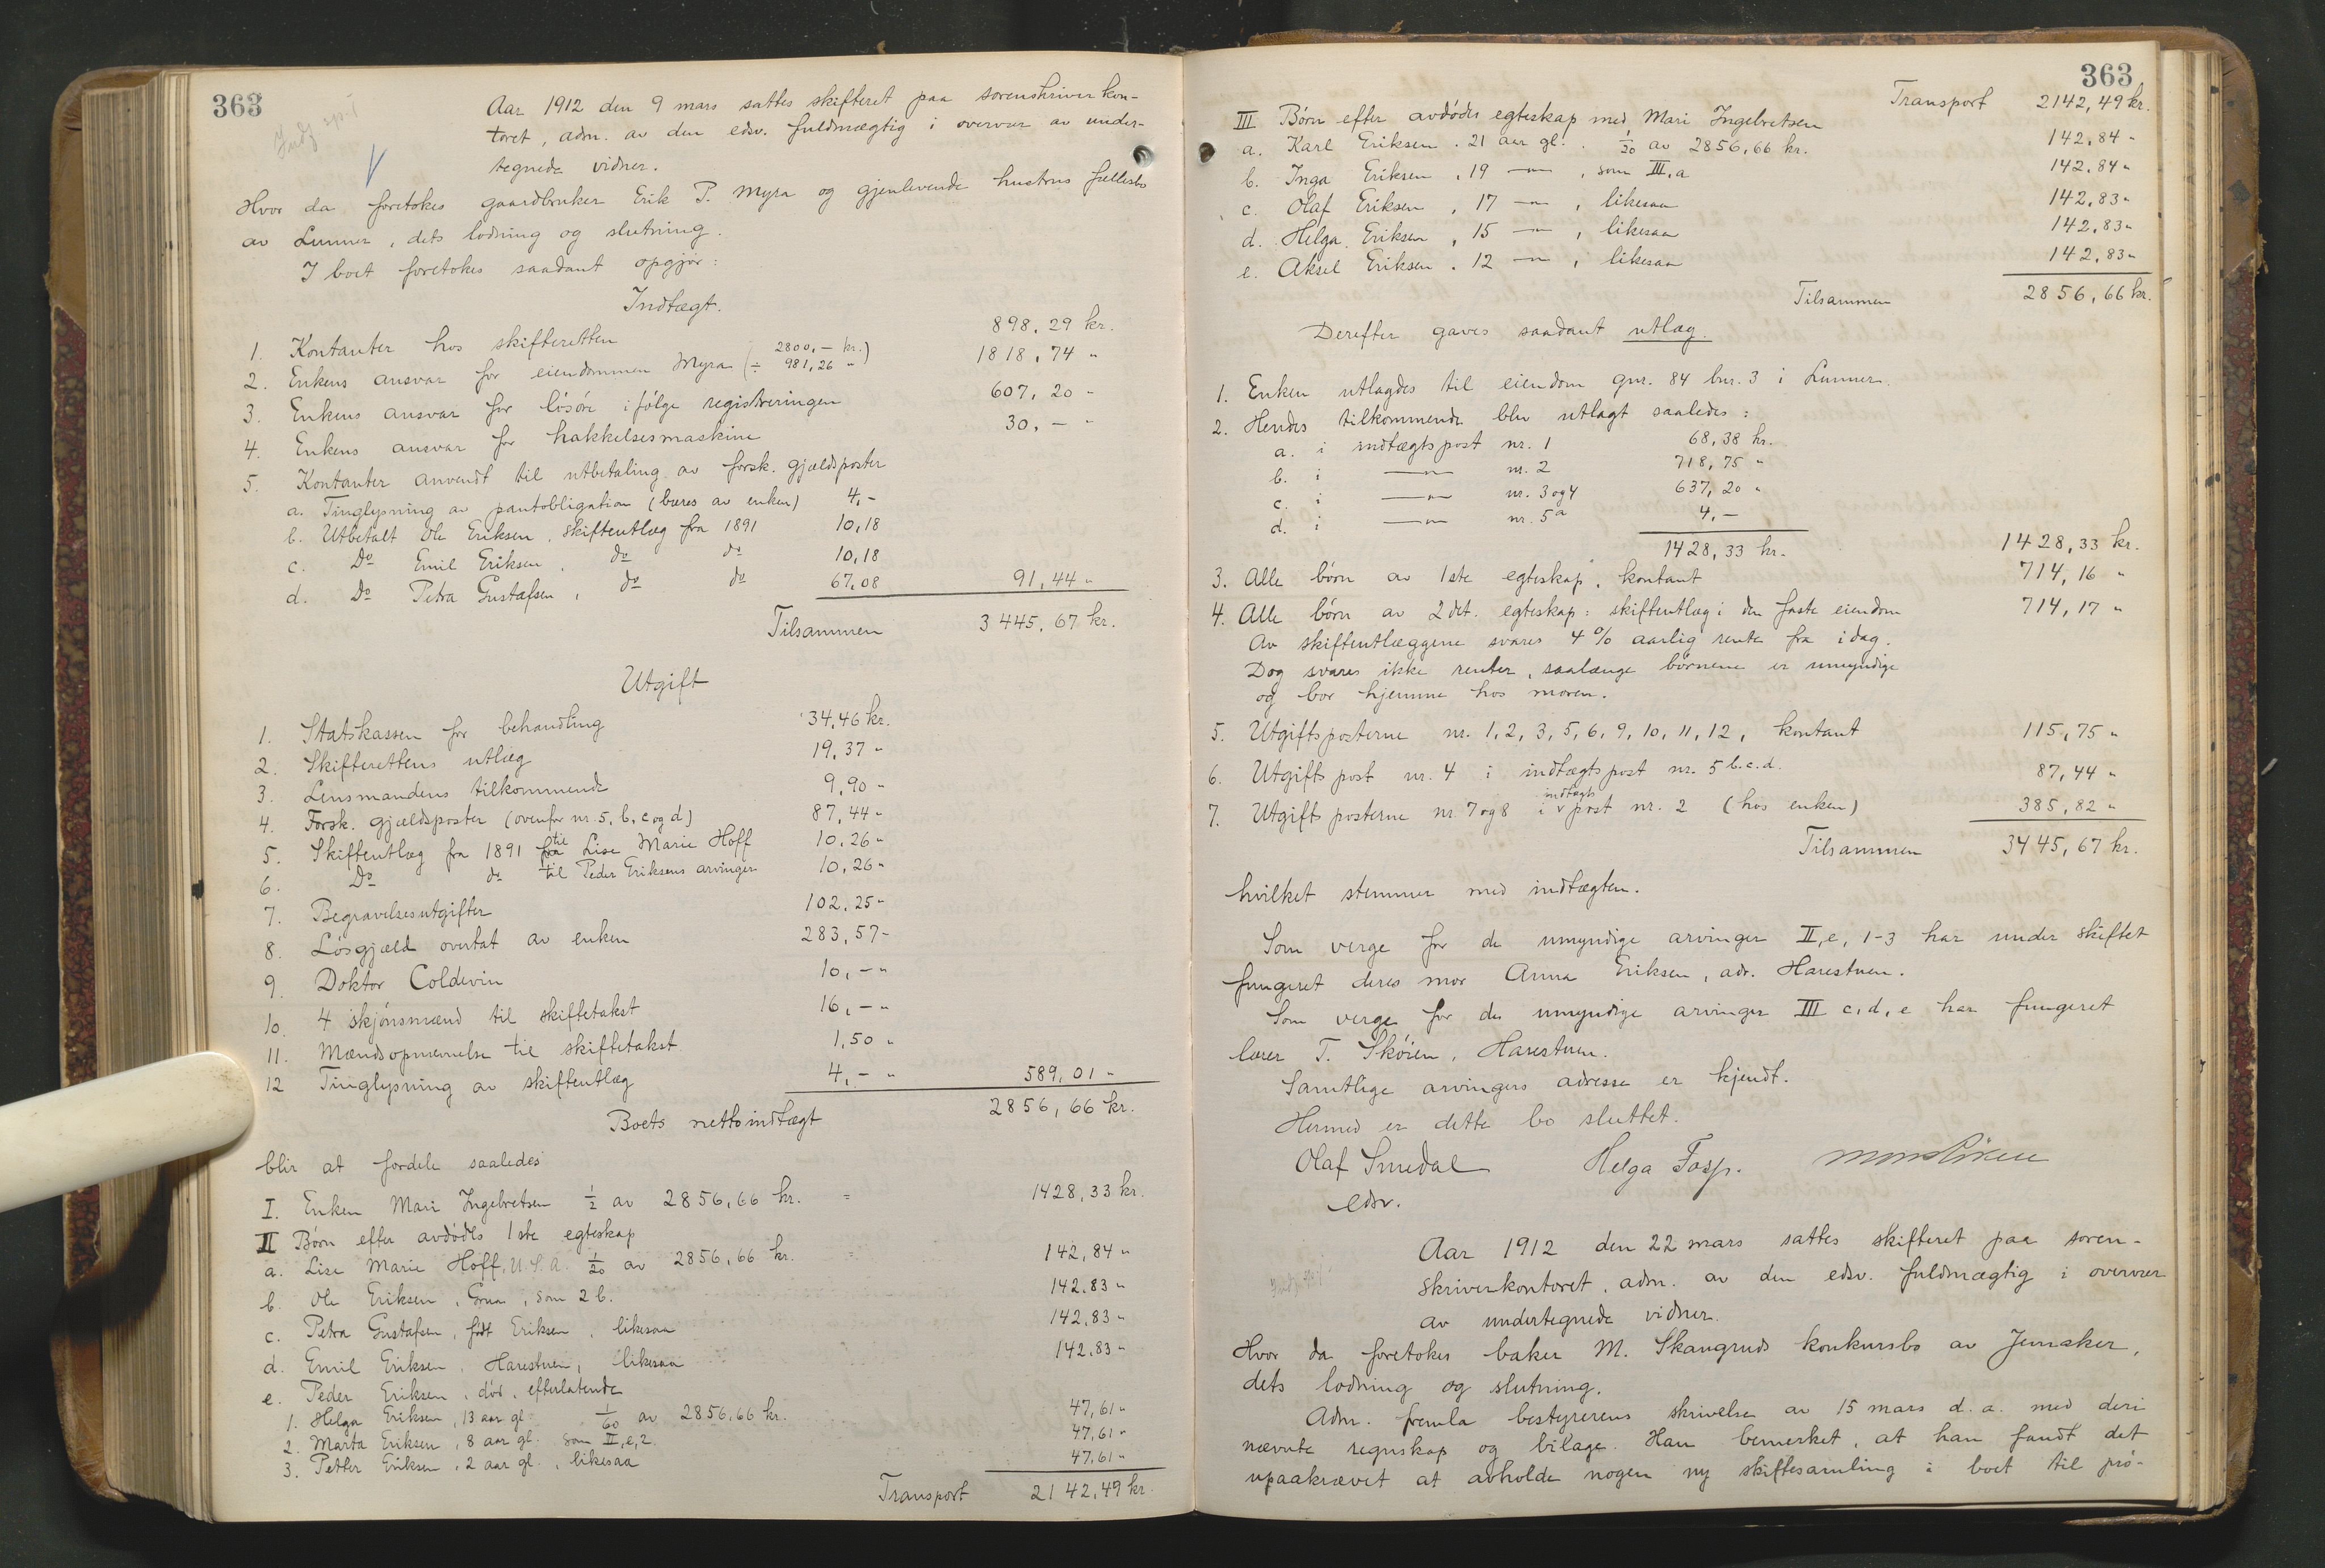 363
Aar 1912 den 9 mars sattes skifteret paa sorenskriverkon-
toret, adm. av den edsv. fuldmægtig i overvær av under-
tegnede vidner.
Hvor da foretokes gaardbruker Erik P. Myra og gjenlevende hustrus fællesbo
av Lunner, dets lodning og slutning.
I boet foretokes saadant opgjør:
Indtægt.
1. Kontanter hos skifteretten 898,29 kr.
2. Enkens ansvar for eiendommen Myra (2800,- kr. ÷ 981,26 ") 1818,74 "
3. Enkens ansvar for løsøre ifølge registreringen 607,20 "
4. Enkens ansvar for hakkelsesmaskine 30,- "
5. Kontanter anvendt til utbetaling av forsk. gjældsposter
a. Tinglysning av pantobligation (bæres av enken) 4,-
b. Utbetalt Ole Eriksen, skifteutlæg fra 1891 10,18
c. Do Emil Eriksen, do do 10,18
d. Do Petra Gustafsen, do do 67,08 91,44 "
Tilsammen 3445,67 kr.
Utgift
1. Statskassen for behandling 34,46 kr.
2. Skifterettens utlæg 19,37 "
3. Lensmandens tilkommende 9,90 "
4. Forsk. gjældsposter (ovenfor nr. 5, b, c og d) 87,44 "
5. Skifteutlæg fra 1891 fra til Lise Marie Hoff 10,26 "
6. Do do til Peder Eriksens arvinger 10,26 "
7. Begravelsesutgifter 102,25 "
8. Løsgjæld overtat av enken 283,57 "
9. Doktor Coldevin 10,- "
10. 4 skjønsmænd til skiftetakst 16,- "
11. Mændsopnævnelse til skiftetakst 1,50 "
12 Tinglysning av skifteutlæg 4,- " 589,01 "
Boets nettoindtægt 2856,66 kr.
blir at fordele saaledes
I. Enken Mari Ingebretsen 1/2 av 2856,66 kr. = 1428,33 kr.
II Børn efter avdødes 1ste egteskap
a. Lise Marie Hoff, U.S.A. 1/20 av 2856,66 kr. = 142,84 "
b. Ole Eriksen, Grua, som 2 b. 142,83 "
c. Petra Gustafsen, født Eriksen, likesaa 142,83 "
d. Emil Eriksen, Harestuen, likesaa 142,83 "
e. Peder Eriksen, død, efterlatende
1. Helga Eriksen, 13 aar gl. 1/60 av 2856,66 kr. 47,61 "
2. Marta Eriksen, 8 aar gl. som II,e,2 47,61 "
3. Petter Eriksen, 2 aar gl., likesaa 47,61 "
Transport 2142,49 kr.
363
Transport 2142,49 kr.
III Børn efter avdødes egteskap med Mari Ingebretsen
a. Karl Eriksen. 21 aar gl. 1/20 av 2856,66 kr. 142,84 "
b. Inga Eriksen, 19 —"—, som III,a 142,84 "
c. Olaf Eriksen, 17 —"—, likesaa 142,83 "
d. Helga Eriksen, 15 —"—, likesaa 142,83 "
e. Aksel Eriksen. 12 —"—, likesaa 142,83 "
Tilsammen 2856,66 kr.
Derefter gaves saadant utlæg.
1. Enken utlagdes til eiendom gnr. 84 bnr. 3 i Lunner.
2. Hendes tilkommende blev utlagt saaledes:
a. i indtægtspost nr. 1 68,38 kr.
b. i —"— nr. 2 718,75 "
c. i —"— nr. 3 og 4 637,20 "
d. i —"— nr. 5a 4,-
1428,33 kr. 1428,33 kr.
3. Alle børn av 1ste egteskap, kontant 714,16 "
4. Alle børn av 2det. egteskap: skifteutlæg i den faste eiendom 714,17 "
Av skifteutlæggene svares 4% aarlig rente fra idag.
Dog svares ikke renter, saalænge børnene er umyndige
og bor hjemme hos moren.
5. Utgiftsposterne nr. 1, 2, 3, 5, 6, 9, 10, 11, 12, kontant 115,75 "
6. Utgiftspost nr. 4 i indtægtspost nr. 5 b.c.d. 87,44 "
7. Utgiftsposterne nr. 7 og 8 i indtægts post nr. 2 (hos enken) 385,82 "
Tilsammen 3445,67 kr.
hvilket stemmer med indtægten.
Som verge for de umyndige arvinger II,e, 1-3 har under skiftet
fungeret deres mor Anna Eriksen, adr. Harestuen.
Som verge for de umyndige arvinger III c, d, e har fungeret
lærer T. Skøien, Harestuen.
Samtlige arvingers adresse er kjendt.
Hermed er dette bo sluttet.
Olaf Smedal Helga Fosp.
edsv.
Aar 1912 den 22 mars sattes skifteret paa soren-
skriverkontoret, adm. av den edsv. fuldmægtig i overvær
av undertegnede vidner.
Hvor da foretokes baker M. Skaugruds konkursbo av Jevnaker,
dets lodning og slutning.
Adm. fremla bestyrerens skrivelse av 15 mars d.a. med deri
nævnte regnskap og bilage. Han bemerket, at han fandt det
upaakrævet at avholde nogen ny skiftesamling i boet til prø-